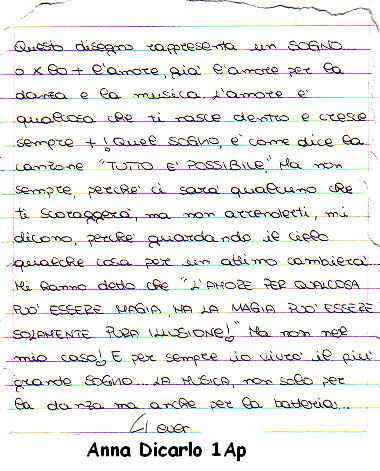 Questo disegno rappresenta un SOGNO
o x lo + l'amore, già l'amore per la
danza e la musica. L'amore è
qualcosa che ti nasce dentro e cresce
sempre + ! Quel SOGNO, è come dice la
canzone "TUTTO E' POSSIBILE". Ma non
sempre, perchè ci sarà qualcuno che
ti scoraggerà, ma non arrenderti, mi
dicono, perchè guardando il cielo
qualche cosa per un attimo cambierà.
Mi hanno detto che "L'AMORE PER QUALCOSA
PUO' ESSERE MAGIA, MA LA MAGIA PUO' ESSERE
SOLAMENTE PURA ILLUSIONE!" Ma non nel
mio caso! E per sempre io vivrò il più
grande SOGNO... LA MUSICA, non solo per
la danza ma anche per la batteria...
4 ever
Anna Dicarlo 1Ap